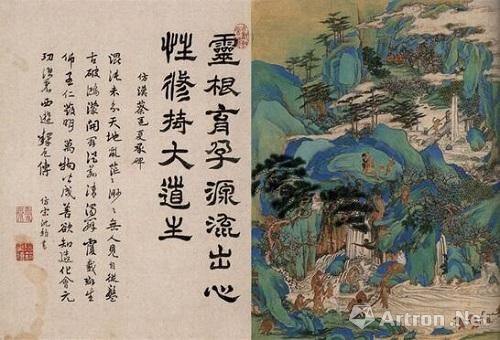 靈根育孕源流出心
性修持大道生
仿漢蔡邕夏承碑
混沌未分天地亂茫〻渺〻無人見自從盤
古破鴻濛開闢從茲清濁辨覆載群生
仰至仁發明萬物皆成善欲知造化會元
功須看西遊釋厄傳
仿宋沈 書
Artron.Net